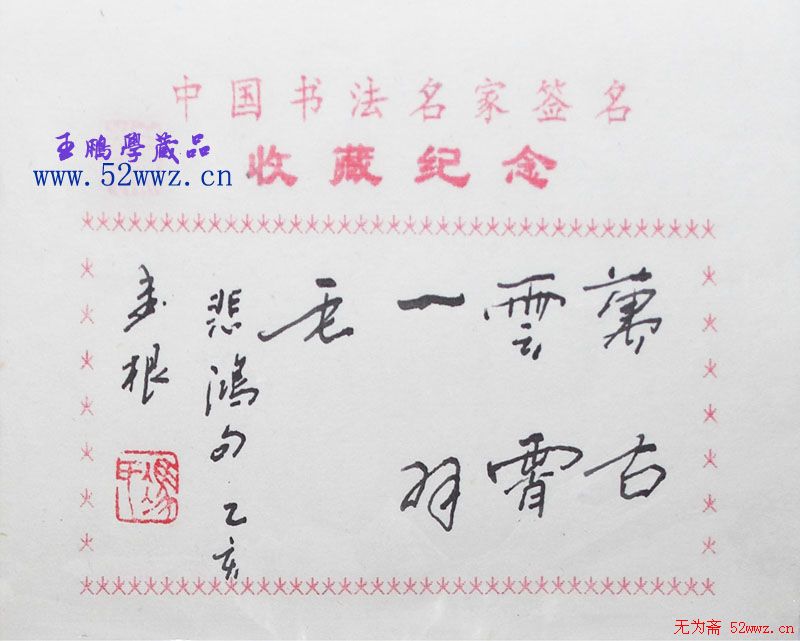 中国书法名家签名
王鵬學藏品
收藏纪念
www.52wwz.cn
萬古
雲霄
一羽
毛
悲鴻句 乙亥
根
无为斋 52wwz.cn